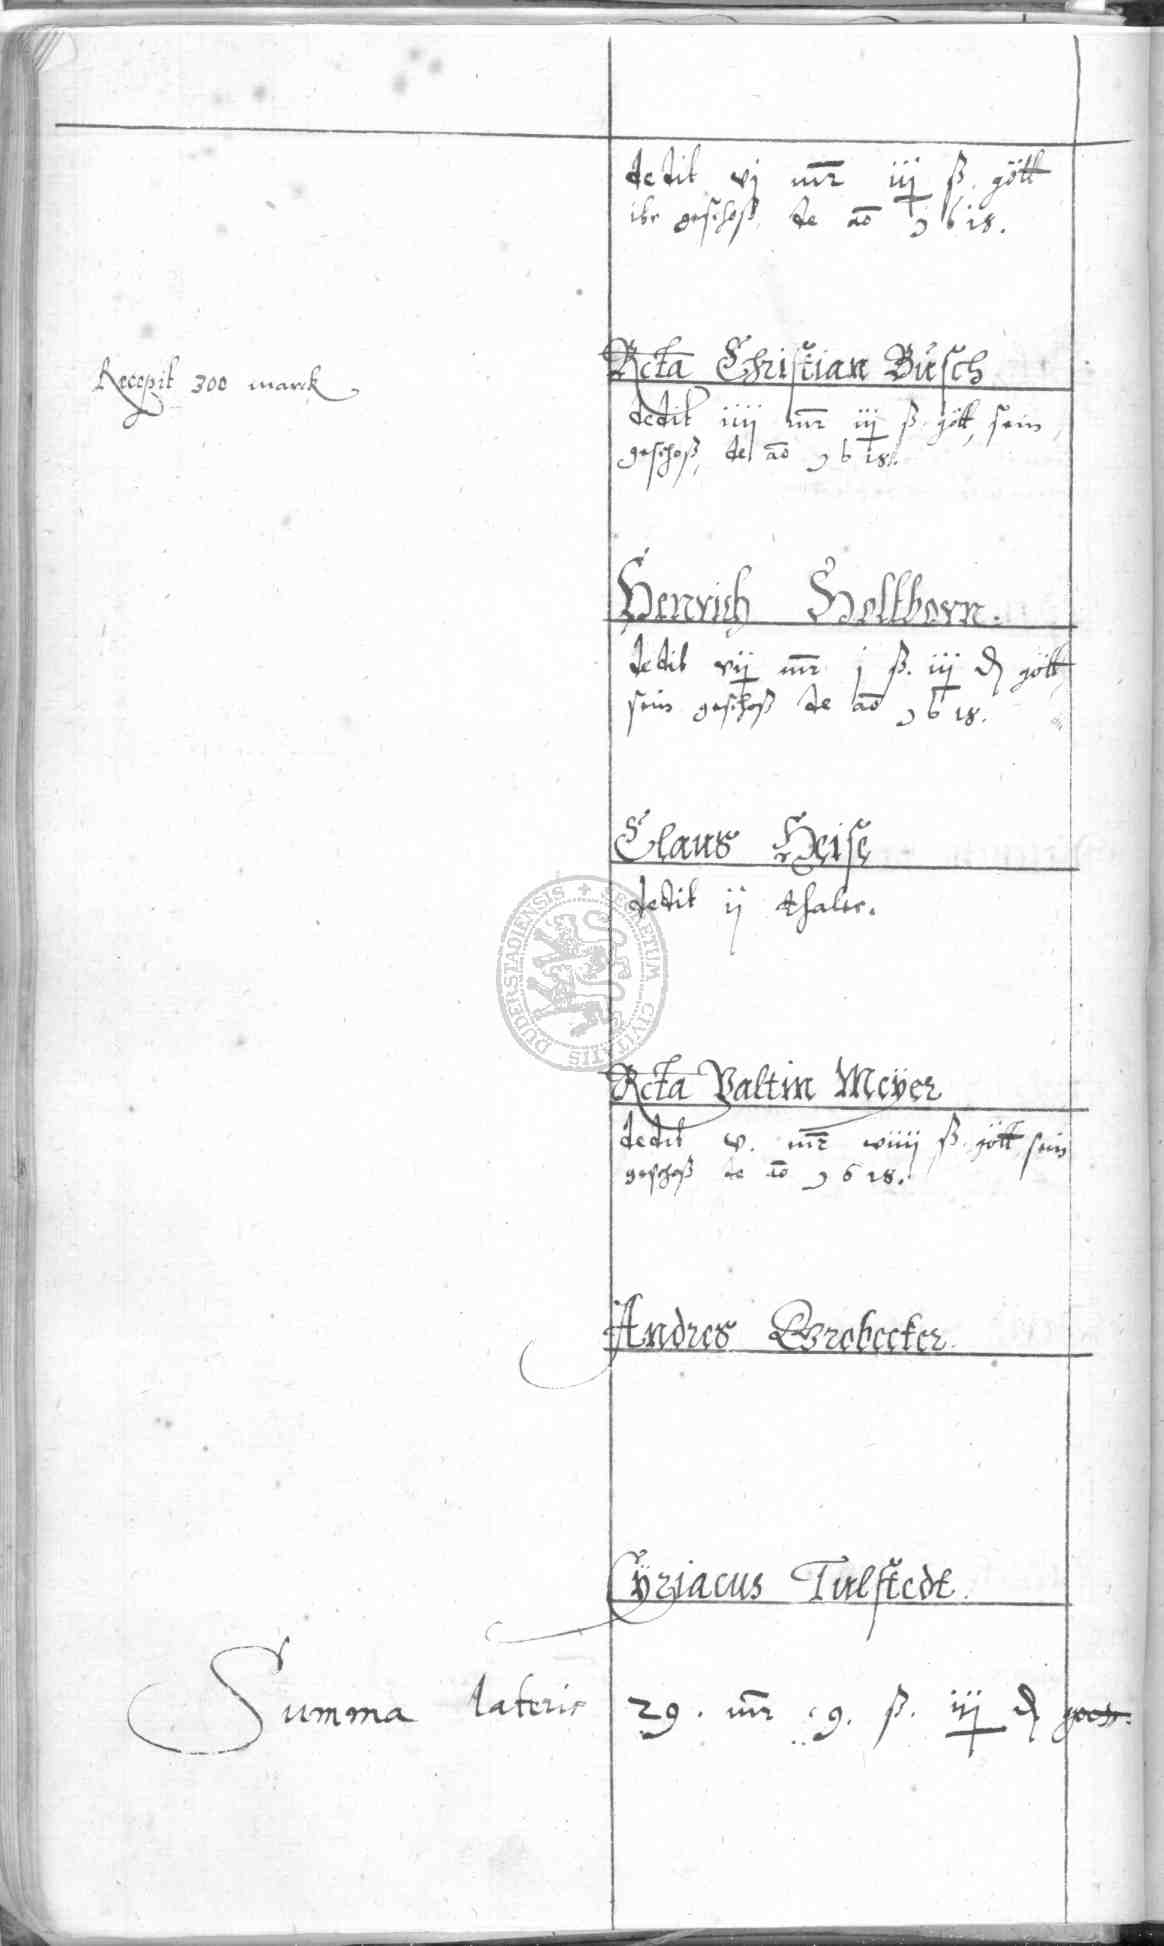 dedit vj mr iij ß. gött
ihr geschoß, de ao 1618.
Rcta Christian Büsch
Recepit 300 marck
dedit iiij mr iij ß. gött, sein
geschoß, de ao 1618.
Henrich Holtborn.
dedit vij mr j ß. iij d gött
sein geschoß de ao 1618.
Claus Heise
dedit ij thaler.
DUDERSTADIENSIS + SECRETUM CIVITATIS
Rcta Valtin Meÿer
dedit v. mr ß. gött sein
geschoß de ao 1618.
Andres Grobecker.
Cÿriacus Tulstedt.
Summa lateris 29. mr 9. ß. iij d